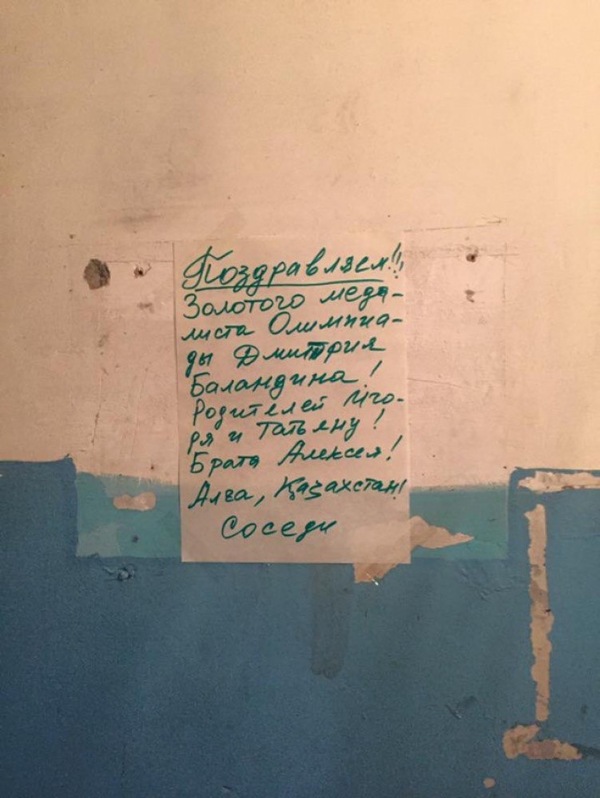 Поздравляем!!!
Золотого меда-
листа Олимпиа-
ды Дмитрия
Баландина!
Родителей Иго-
ря и Татьяну!
Брата Алексея!
Алға, Қазахстан!
Соседи